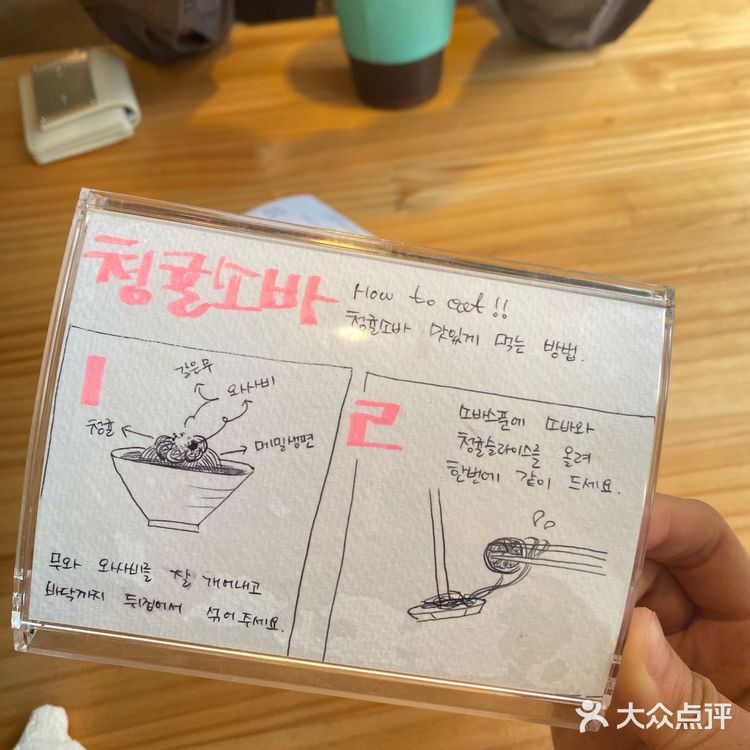 청귤소바
How to eat!!
청귤소바 맛있게 먹는 방법.
1
갈은무
와사비
청귤
메밀생면
무와 와사비를 잘 개어내고
바닥까지 뒤집어서 섞어주세요.
2
소바스푼에 소바와
청귤슬라이스를 올려
한번에 같이 드세요.
大众点评